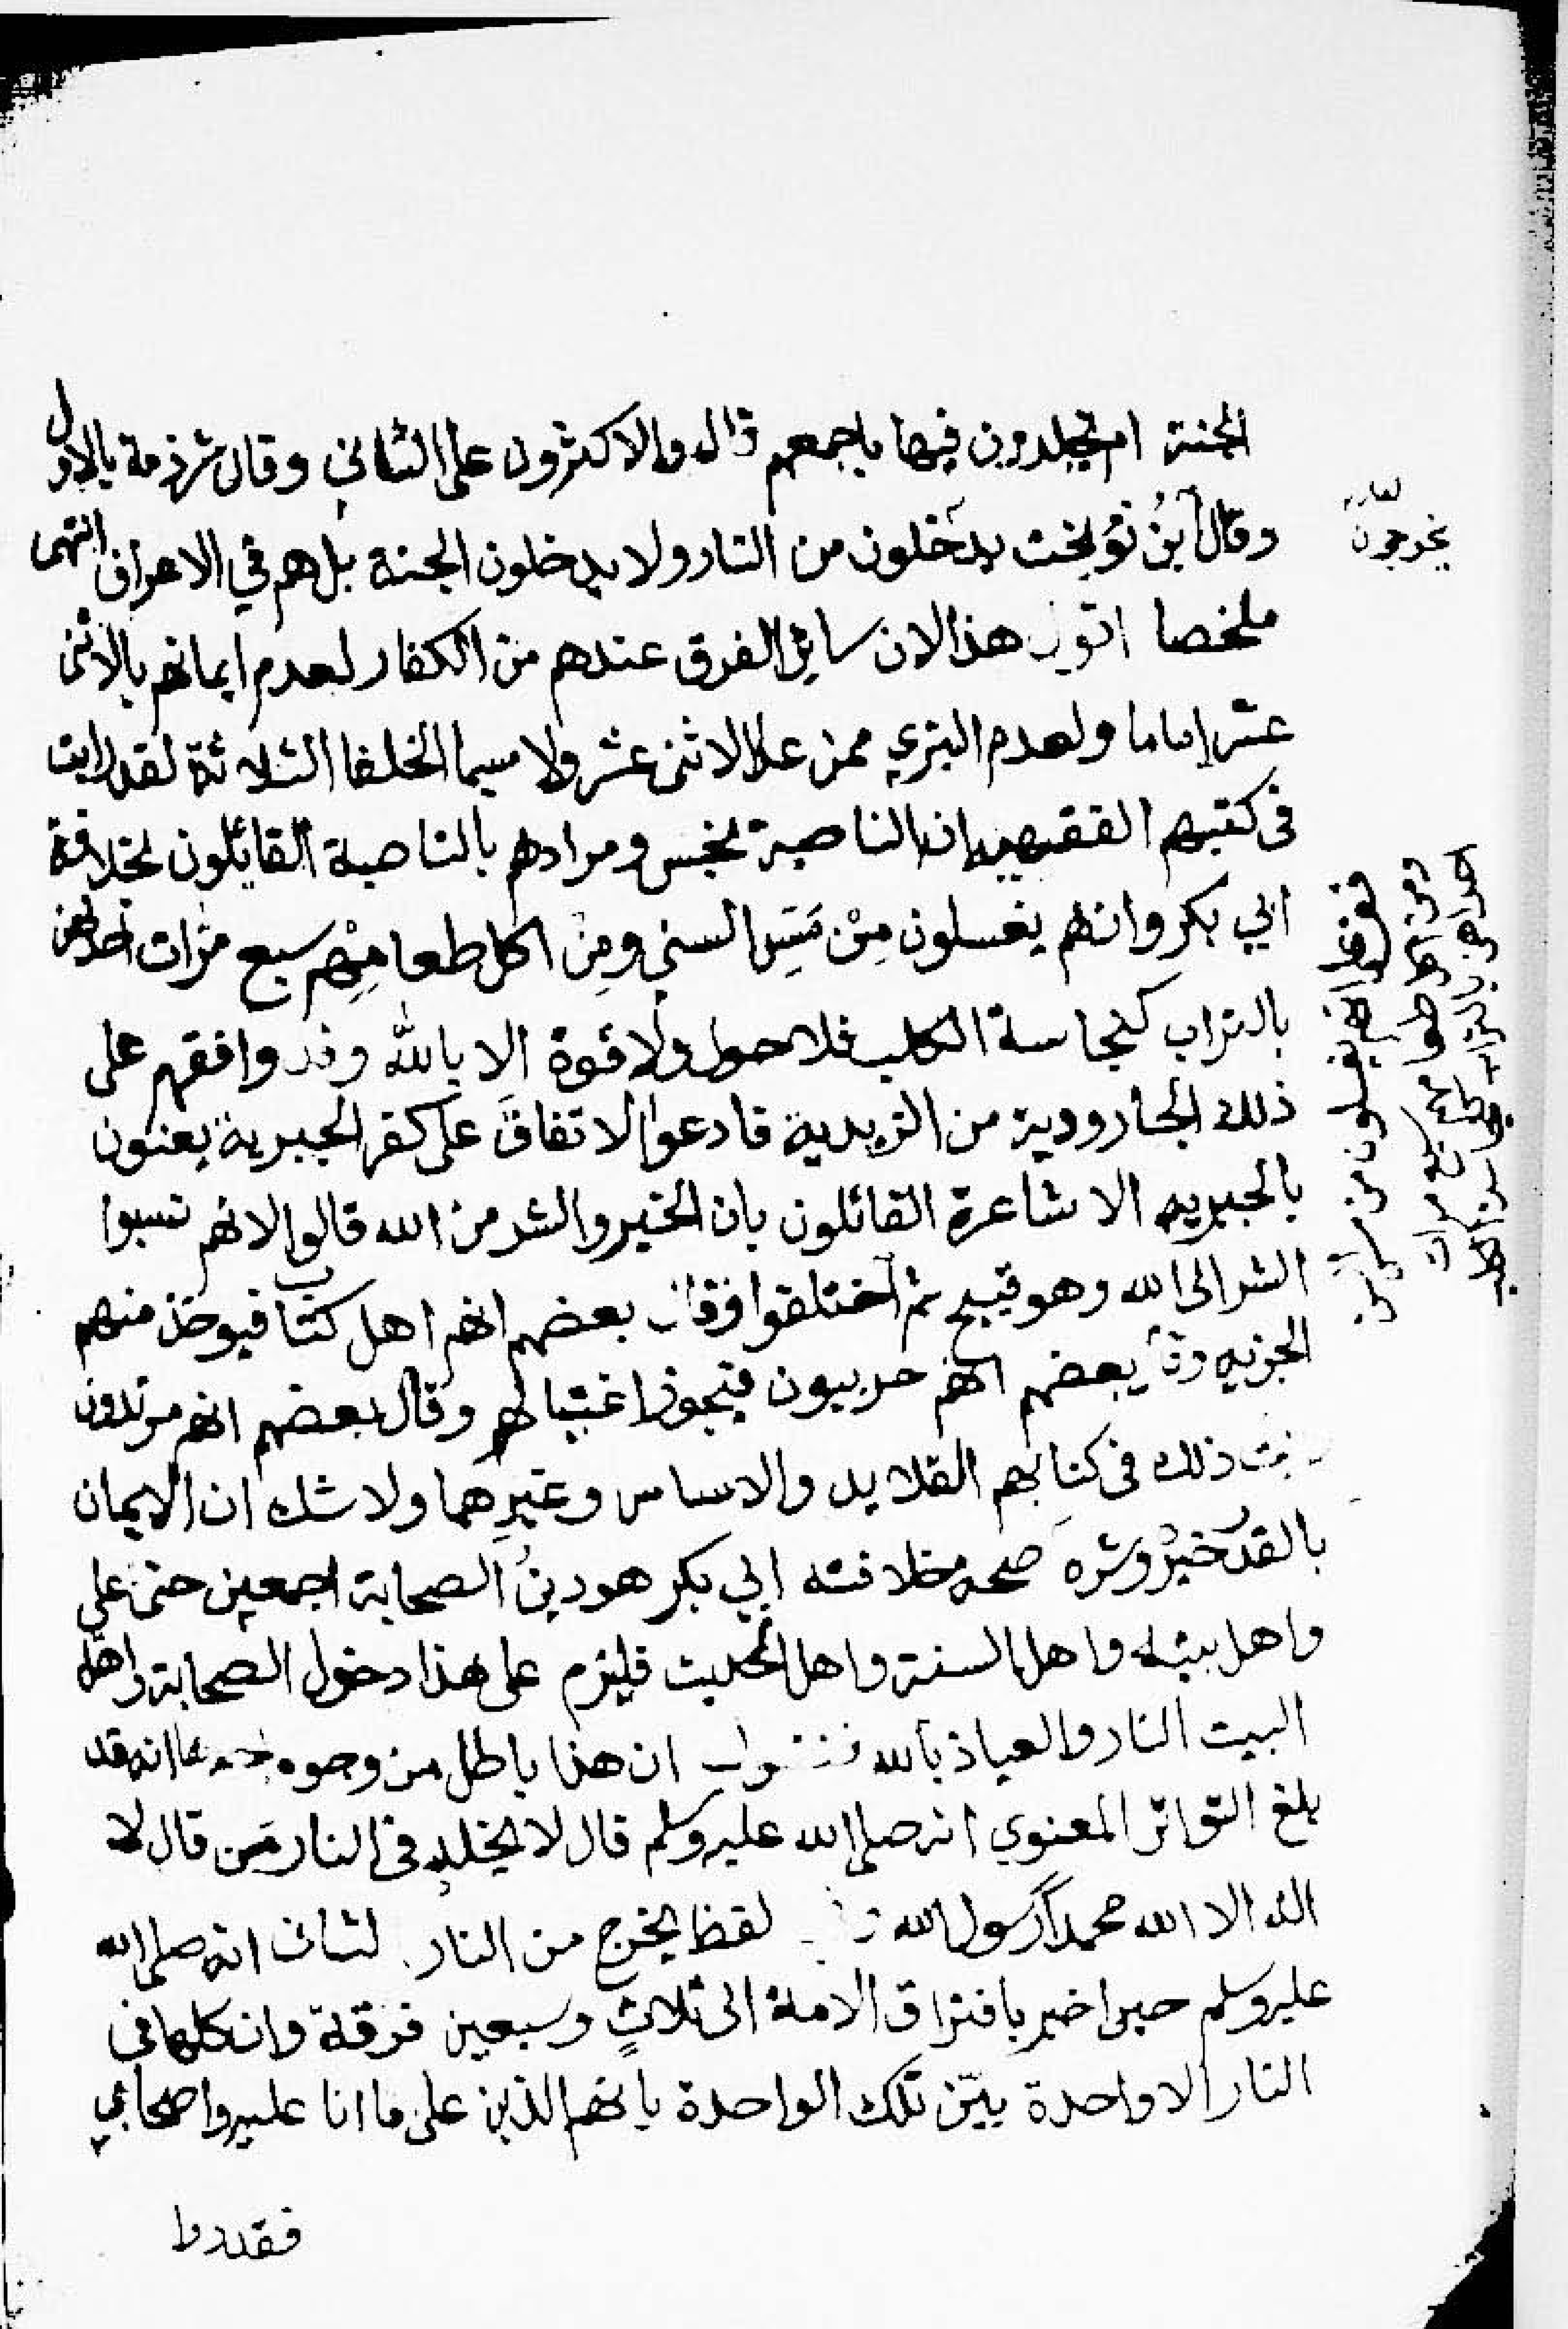 الجنة ام يخلدون فيها باجمعهم قال والاكثرون على الثاني وقال شرذمة بالاول
وقال ابن نوبخت يدخلون من النار ولا يدخلون الجنة بل هم في الاعراف انتهى
ملخصا اقول هذا لان سائر الفرق عندهم من الكفار لعدم ايمانهم بالاثنى
عشر اماما ولعدم التبري ممن عدا الاثنى عشر ولا سيما الخلفا الثلاثة لقد رايت
فى كتبهم الفقهيه ان الناصبة نجس ومرادهم بالناصبة القايلون بخلافة
ابي بكر وانهم يغسلون مِنْ مَسِّ السني ومِن اكل طعامِهِم سبع مرات احداهن
بالتراب كنجاسة الكلب فلا حول ولا قوة الا بالله وقد وافقهم على
ذلك الجارودية من الزيدية فادعوا الاتفاقَ على كفر الجبرية يعنون
بالجبريه الاشاعرة القائلون بان الخير والشر من الله قالوا لانهم نسبوا
الشر الى الله وهو قبيح ثم اختلفوا فقال بعضهم انهم اهل كتاب فيوخذ منهم
الجزيه وقال بعضهم انهم حربيون فيجوز اغتيالهم وقال بعضهم انهم مرتدون
ذلك فى كتابهم القلايد والاساس وغيرِهما ولا شك ان الايمان
بالقدر خيرُ وشره صحه خلافته ابي بكر هو دينُ الصحابة اجمعين حتى على
واهل بيته واهل السنة واهل الحديث فليزم على هذا دخول الصحابة واهل
البيت النار والعياذ بالله فنقول ان هذا باطل من وجوه انه قد
بلغ التواتر المعنوي انه صلى الله عليه وسلم قال لا يخلد فى النار مَن قال لا
اله الا الله محمداً رسول الله لفظ يخرج من النار لثان انه صلى الله
عليه وسلم حين اخبر بافتراق الامة الى ثلاثٍ وسبعين فرقة وان كلها فى
النار الا واحدة بيّن تلك الواحدة بانهم الذين على ما انا عليه واصحابي
فقدروا
يخرجون